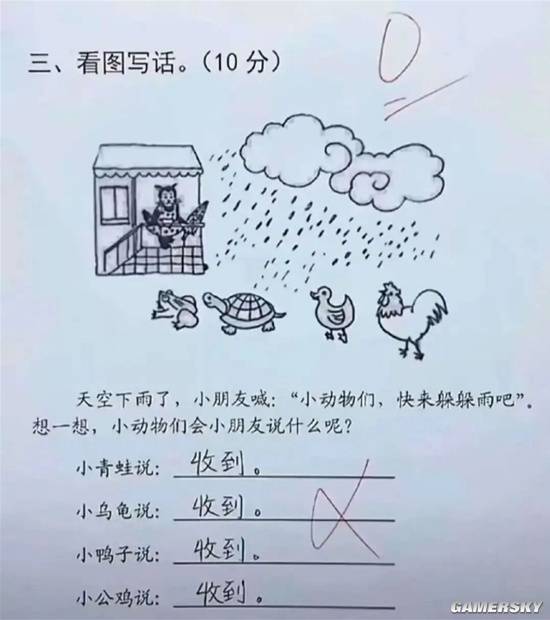 三、看图写话。（10 分）
0
天空下雨了，小朋友喊：“小动物们，快来躲躲雨吧”。
想一想，小动物们会小朋友说什么呢？
小青蛙说：收到。
小乌龟说：收到。
小鸭子说：收到。
小公鸡说：收到。
GAMERSKY